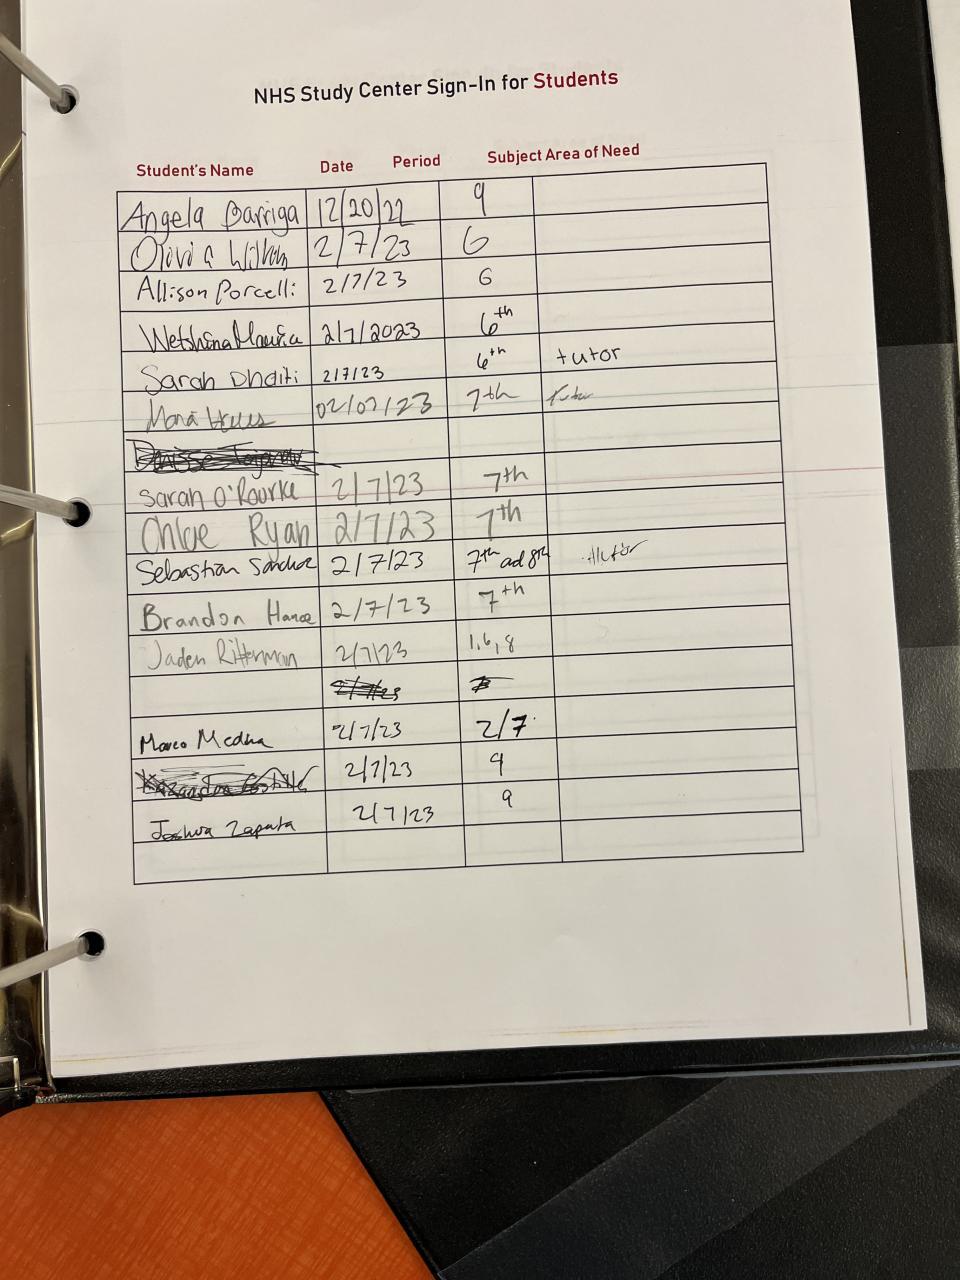 NHS Study Center Sign-In for Students
Student's Name Date Period Subject Area of Need
Angela Barriga 12/20/22 9
Olivia 2/7/23 6
Allison Porcelli 2/7/23 6
2/7/2023 6th
Sarah Dhaiti 2/7/23 6th tutor
02/07/23 7th tutor
Sarah O'Rourke 2/7/23 7th
Chloe Ryan 2/7/23 7th
Sebastian 2/7/23 7th ad 8th
Brandon 2/7/23 7th
Jaden Ritterman 2/7/23 1,6,8
2/7/23
Marco 2/7/23 2/7
2/7/23 9
Joshua Zapata 2/7/23 9